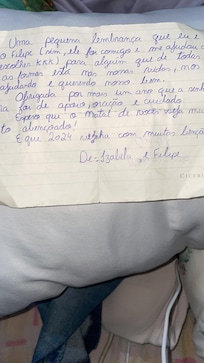 Uma pequena lembrança que eu e
o Filipe (sim, ele foi comigo e me ajudou a
escolher KKK) para alguém que de todas
as formas está nas nossas vidas, nos
ajudando e querendo nosso bem.
Obrigada por mais um ano que a senh
foi de apoio, oração e cuidado.
Espero que o Natal de vocês seja mui
to abençoado!
E que 2024 venha com muitas benção
De: Izabela e Filipe